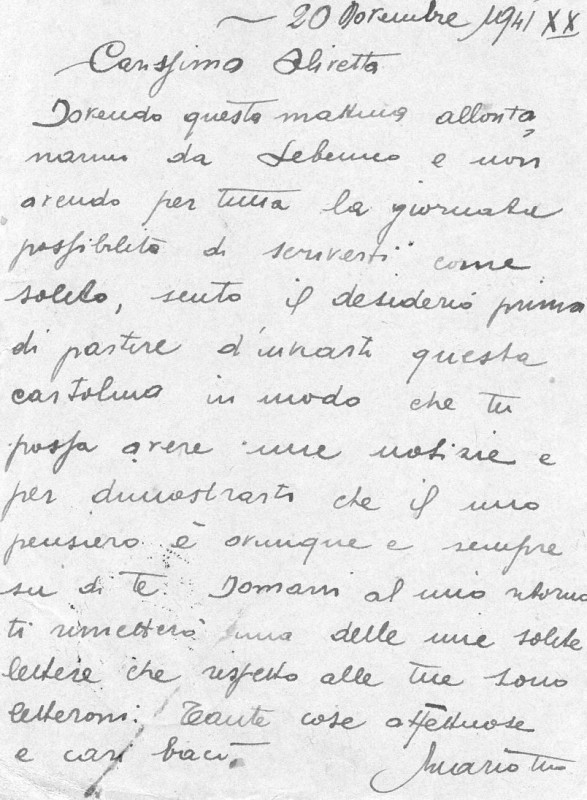 20 Novembre 1941 XX
Carissima Alivetta
Dovendo questa mattina allonta
narmi da Sebenico e non
avendo per tutta la giornata
possibilità di scriverti come
solito, sento il desiderio prima
di partire d'inviarti questa
cartolina in modo che tu
possa avere mie notizie e
per dimostrarti che il mio
pensiero è ovunque e sempre
su di te. Domani al mio ritorno
ti rimetterò una delle mie solite
lettere che rispetto alle tue sono
letteroni. Tante cose affettuose
e cari baci.
Mario tuo